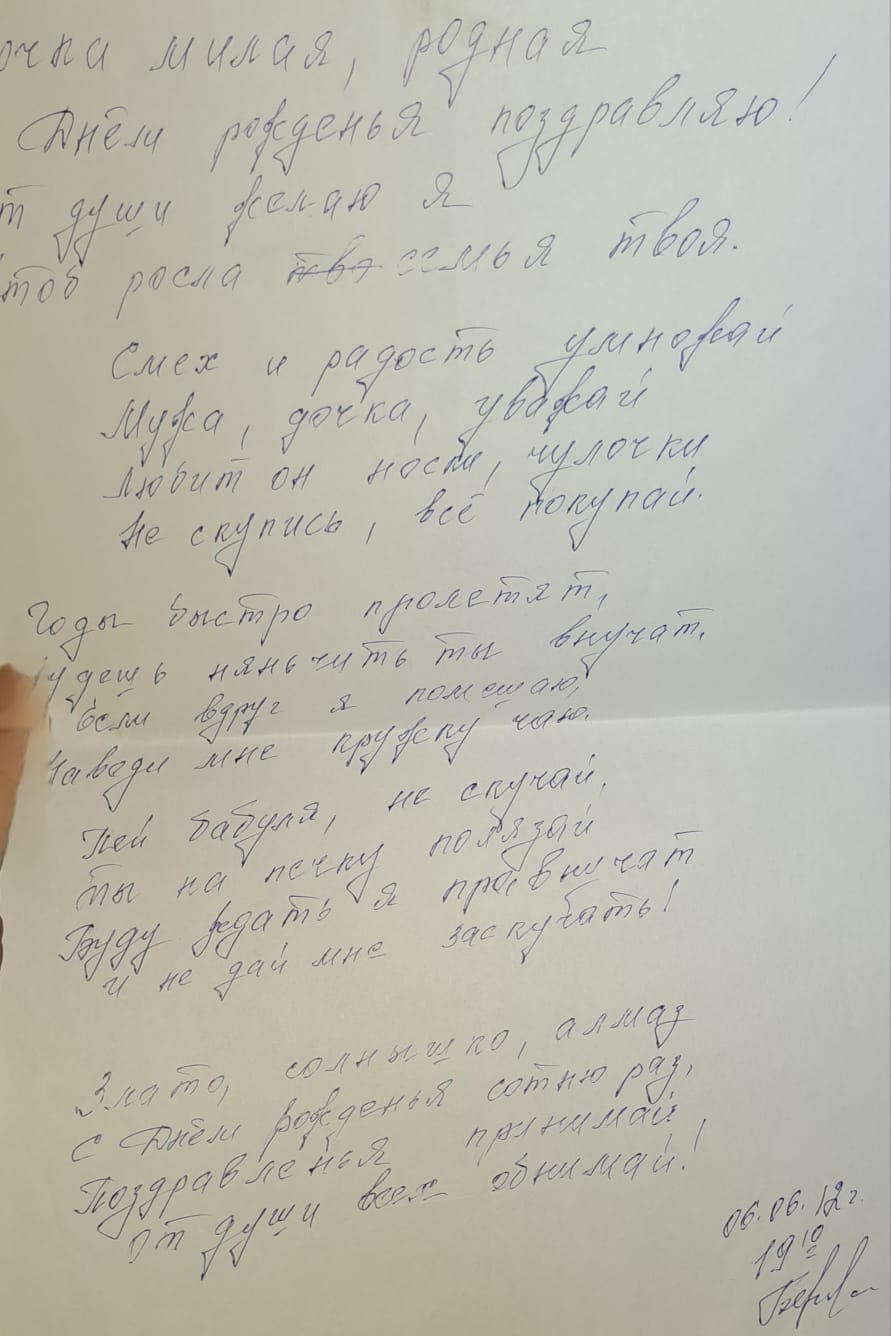 очка милая, родная
Днём рожденья поздравляю!
т души желаю я
тоб росла тво семья твоя.
Смех и радость умножай
Мужа, дочка, уважай
Любит он носки, чулочки
Не скупись, всё покупай.
Годы быстро пролетят,
удешь няньчить ты внучат.
Если вдруг я помешаю,
Наведи мне кружку чаю.
Пей бабуля, не скучай,
Ты на печку полязай
Буду ждать я правнучат
И не дай мне заскучать!
Злато, солнышко, алмаз
С Днём рожденья сотню раз,
Поздравленья принимай,
От души всех обнимай!
06.06.12г.
19 10